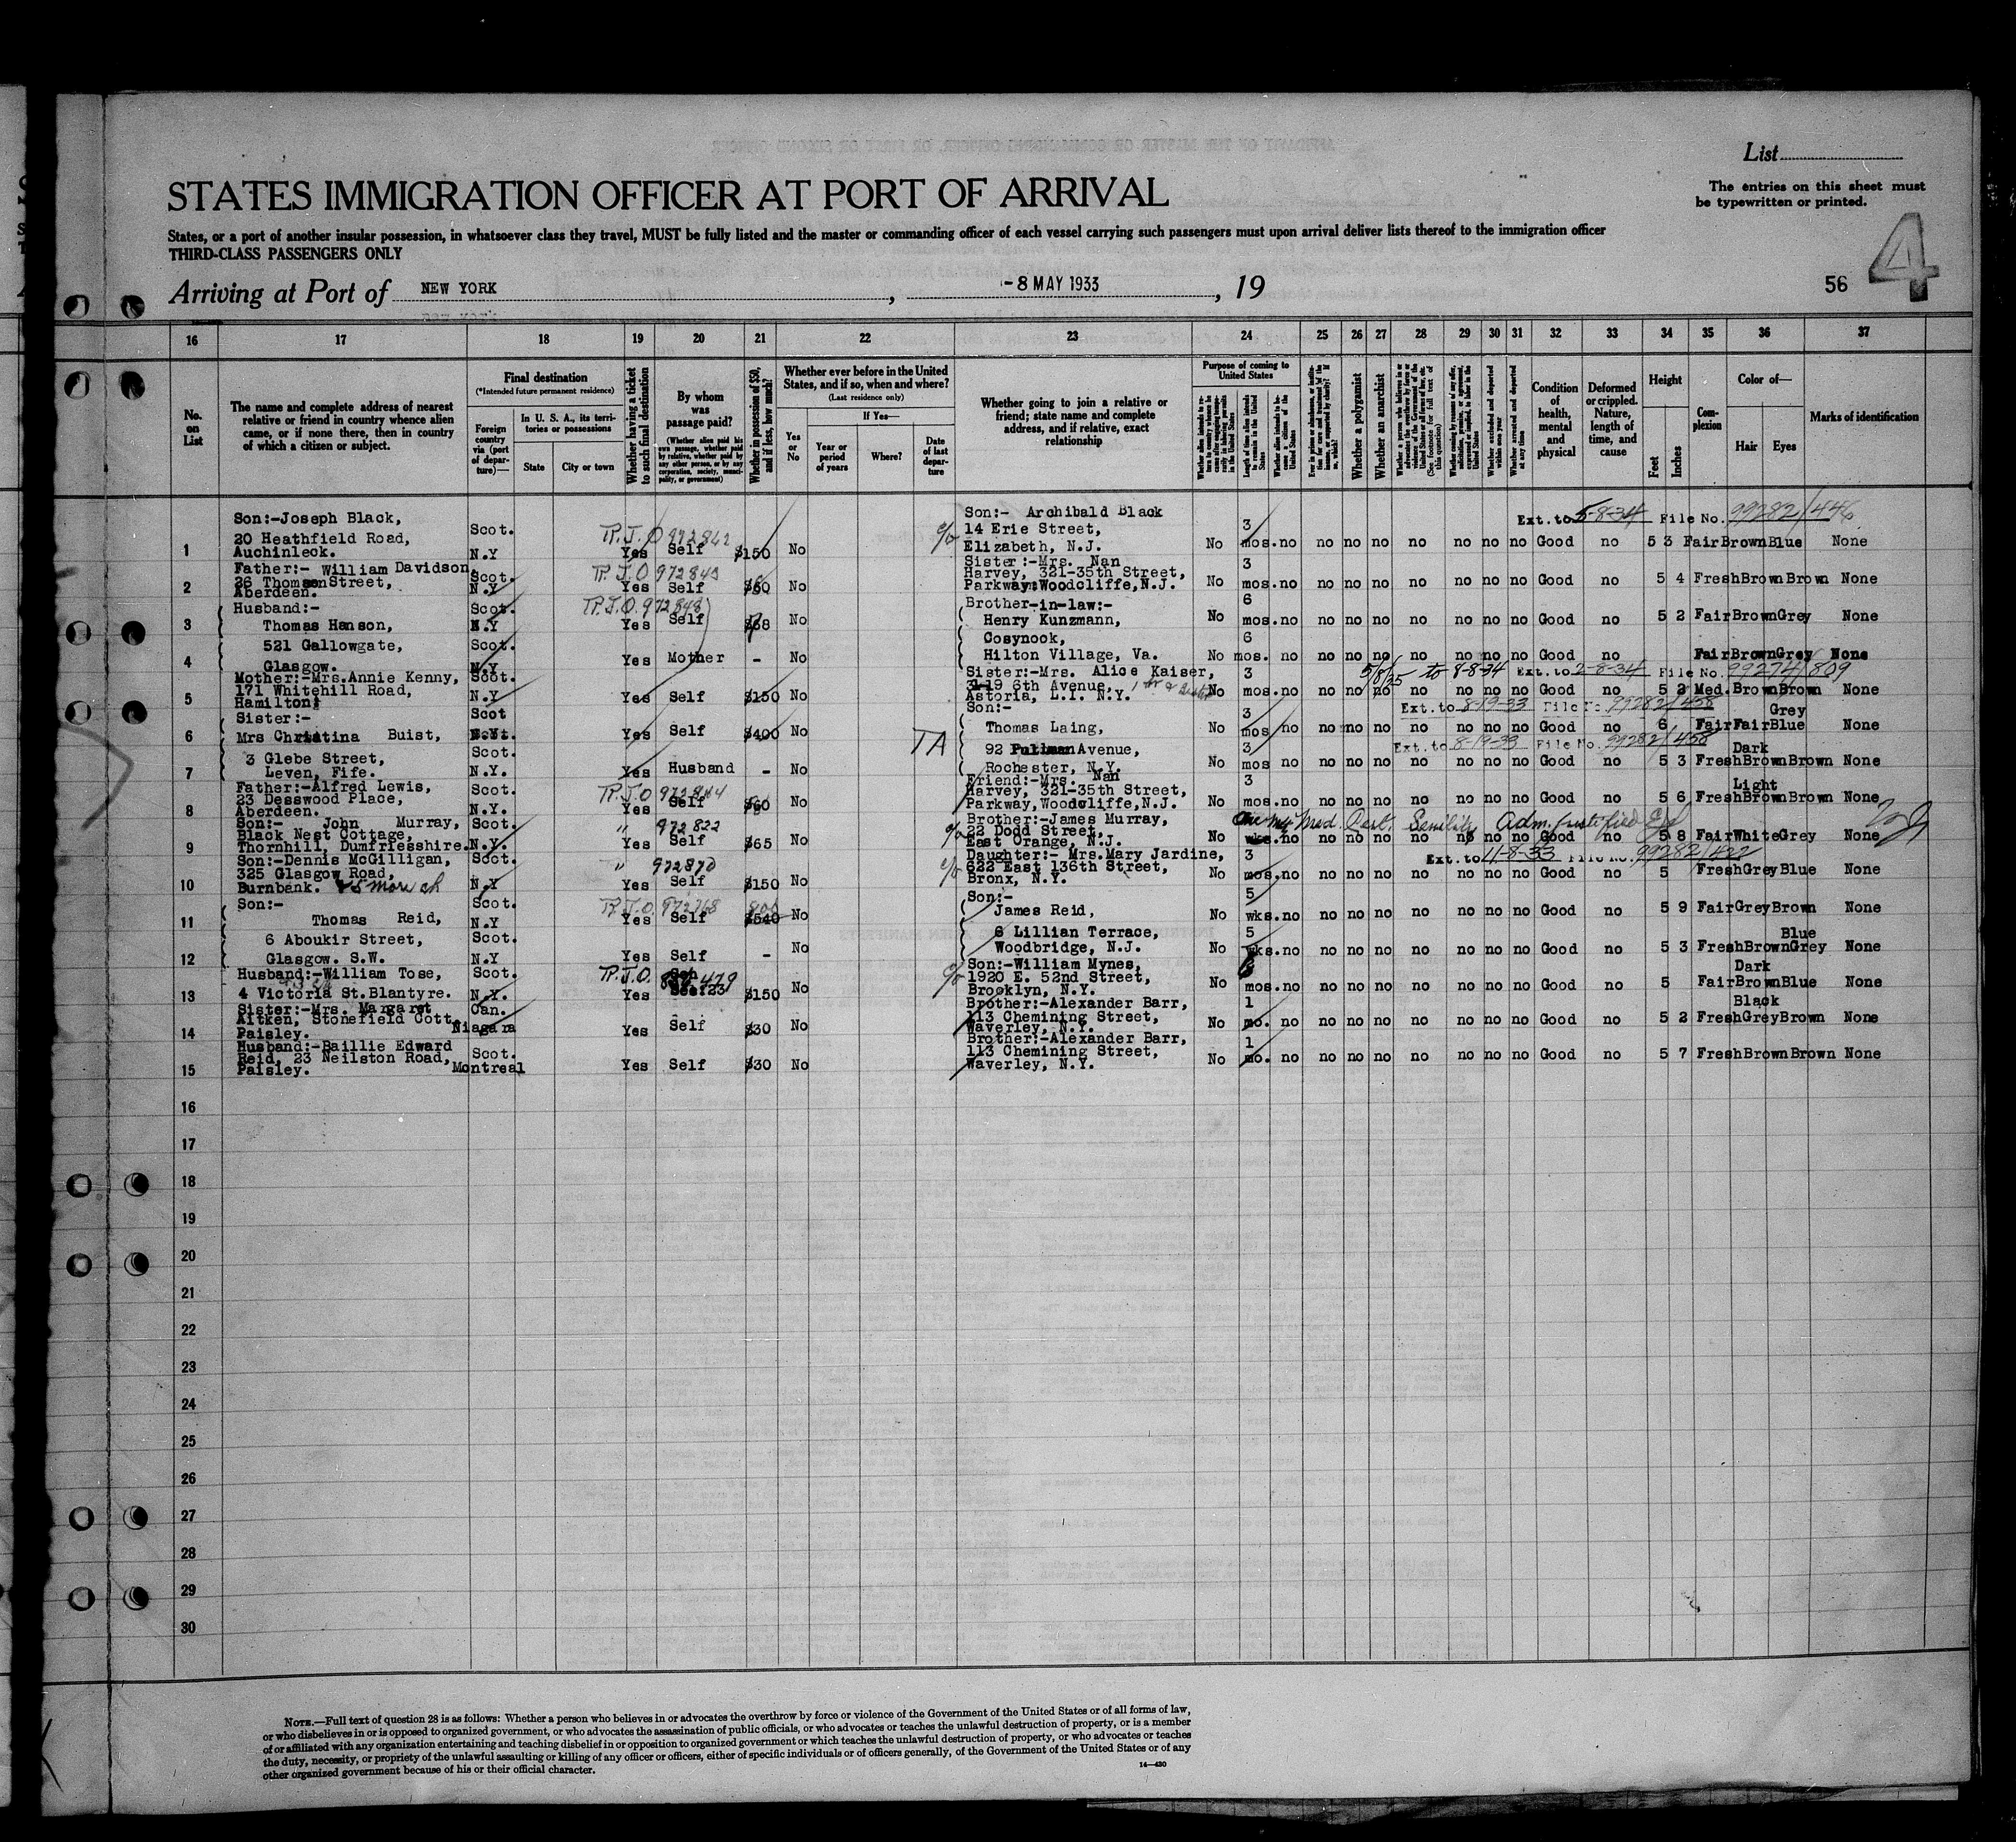 List
STATES IMMIGRATION OFFICER AT PORT OF ARRIVAL
The entries on this sheet must
be typewritten or printed.
States, or a port of another insular possession, in whatsoever class they travel, MUST be fully listed and the master or commanding officer of each vessel carrying such passengers must upon arrival deliver lists thereof to the immigration officer
THIRD-CLASS PASSENGERS ONLY
Arriving at Port of NEW YORK, -8 MAY 1933, 19
56 4
16 17 18 19 20 21 22 23 24 25 26 27 28 29 30 31 32 33 34 35 36 37
No. on List
The name and complete address of nearest relative or friend in country whence alien came, or if none there, then in country of which a citizen or subject.
Final destination
(*Intended future permanent residence)
Foreign country via (port of departure)—
In U. S. A., its territories or possessions
State
City or town
Whether having a ticket to such final destination
By whom was passage paid?
(Whether alien paid his own passage, whether paid by relative, whether paid by any other person, or by any corporation, society, municipality, or government)
Whether in possession of $50, and if less, how much?
Whether ever before in the United States, and if so, when and where?
(Last residence only)
Yes or No
If Yes—
Year or period of years
Where?
Date of last departure
Whether going to join a relative or friend; state name and complete address, and if relative, exact relationship
Purpose of coming to United States
Length of time alien intends to remain in the United States
Whether alien intends to become a citizen of the United States
Whether a polygamist
Whether an anarchist
Whether excluded and deported within one year
Whether arrested and deported at any time
Condition of health, mental and physical
Deformed or crippled. Nature, length of time, and cause
Height
Feet
Inches
Complexion
Color of—
Hair
Eyes
Marks of identification
Ext. to 5-8-34 File No. 99282/446
1 Son:-Joseph Black, 20 Heathfield Road, Auchinleck. Scot. N.Y T.J.O 972842 Yes Self $150 No c/o Son:- Archibald Black 14 Erie Street, Elizabeth, N.J. No 3 mos. no no no no no no no no Good no 5 3 Fair Brown Blue None
2 Father:- William Davidson, 26 Thomson Street, Aberdeen. Scot. N.Y T.J.O 972843 Yes Self $60 No Sister:-Mrs. Nan Harvey, 321-35th Street, Parkway, Woodcliffe, N.J. No 3 mos. no no no no no no no no Good no 5 4 Fresh Brown Brown None
3 Husband:- Thomas Hanson, Scot. N.Y T.J.O. 972848 Yes Self $68 No Brother-in-law:- Henry Kunzmann, No 6 mos. no no no no no no no no Good no 5 2 Fair Brown Grey None
4 521 Gallowgate, Glasgow. Scot. N.Y Yes Mother - No Cosynook, Hilton Village, Va. No 6 mos. no no no no no no no no Good no Fair Brown Grey None
5/8/35 to 8-8-34 Ext. to 2-8-34 File No. 99274/809
5 Mother:-Mrs.Annie Kenny, 171 Whitehill Road, Hamilton. Scot. N.Y Yes Self $150 No Sister-Mrs. Alice Kaiser, 3119 6th Avenue, Astoria, L.I. N.Y. No 3 mos. no no no no no no no no Good no 5 2 Med. Brown Brown None
Ext. to 8-19-33 File No. 99282/458
6 Sister:- Mrs Christina Buist, Scot N.Y. Yes Self $400 No TA Son:- Thomas Laing, No 3 mos no no no no no no no no Good no 6 Fair Grey Fair Blue None
Ext. to 8-19-33 File No. 99282/458
7 3 Glebe Street, Leven, Fife. Scot. N.Y. Yes Husband - No 92 Pullman Avenue, Rochester, N.Y. No 3 mos no no no no no no no no Good no 5 3 Fresh Dark Brown Brown None
8 Father:-Alfred Lewis, 23 Desswood Place, Aberdeen. Scot. N.Y. T.J.O 972844 Yes Self $60 No Friend:-Mrs. Nan Harvey, 321-35th Street, Parkway, Woodcliffe, N.J. No 3 mos. no no no no no no no no Good no 5 6 Fresh Light Brown Brown None
Med. Cert. Senility Adm.
9 Son:- John Murray, Black Nest Cottage, Thornhill, Dumfriesshire. Scot. N.Y. " 972822 Yes Self $65 No c/o Brother:-James Murray, 22 Dodd Street, East Orange, N.J. No wks. no no no no no no no no Good no 5 8 Fair White Grey None
Ext. to 11-8-33 File No. 99282/422
10 Son:-Dennis McGilligan, 325 Glasgow Road, Burnbank. 5 more ch Scot. N.Y " 972870 Yes Self $150 No c/o Daughter:- Mrs.Mary Jardine, 622 East 136th Street, Bronx, N.Y. No 3 mos. no no no no no no no no Good no 5 Fresh Grey Blue None
11 Son:- Thomas Reid, Scot. N.Y T.J.O. 972768 Yes Self 800 $540 No Son:- James Reid, No 5 wks. no no no no no no no no Good no 5 9 Fair Grey Brown None
12 6 Aboukir Street, Glasgow. S.W. Scot. N.Y Yes Self - No 6 Lillian Terrace, Woodbridge, N.J. No 5 wks. no no no no no no no no Good no 5 3 Fresh Brown Blue Grey None
13 Husband:-William Tose, 4 Victoria St. Blantyre. Scot. N.Y. T.J.O. Yes $150 No c/o Son:-William Mynes, 1920 E. 52nd Street, Brooklyn, N.Y. No 6 mos. no no no no no no no no Good no 5 Fair Dark Brown Blue None
14 Sister:-Mrs. Margaret Aitken, Stonefield Cott. Paisley. Can. Niagara Yes Self $30 No Brother:-Alexander Barr, 113 Chemining Street, Waverley, N.Y. No 1 mo. no no no no no no no no Good no 5 2 Fresh Black Grey Brown None
15 Husband:-Baillie Edward Reid, 23 Neilston Road, Paisley. Scot. Montreal Yes Self $30 No Brother:-Alexander Barr, 113 Chemining Street, Waverley, N.Y. No 1 mo. no no no no no no no no Good no 5 7 Fresh Brown Brown None
16
17
18
19
20
21
22
23
24
25
26
27
28
29
30
NOTE.—Full text of question 28 is as follows: Whether a person who believes in or advocates the overthrow by force or violence of the Government of the United States or of all forms of law,
or who disbelieves in or is opposed to organized government, or who advocates the assassination of public officials, or who advocates or teaches the unlawful destruction of property, or is a member
of or affiliated with any organization entertaining and teaching disbelief in or opposition to organized government or which teaches the unlawful destruction of property, or who advocates or teaches
the duty, necessity, or propriety of the unlawful assaulting or killing of any officer or officers, either of specific individuals or of officers generally, of the Government of the United States or of any
other organized government because of his or their official character.
14—430